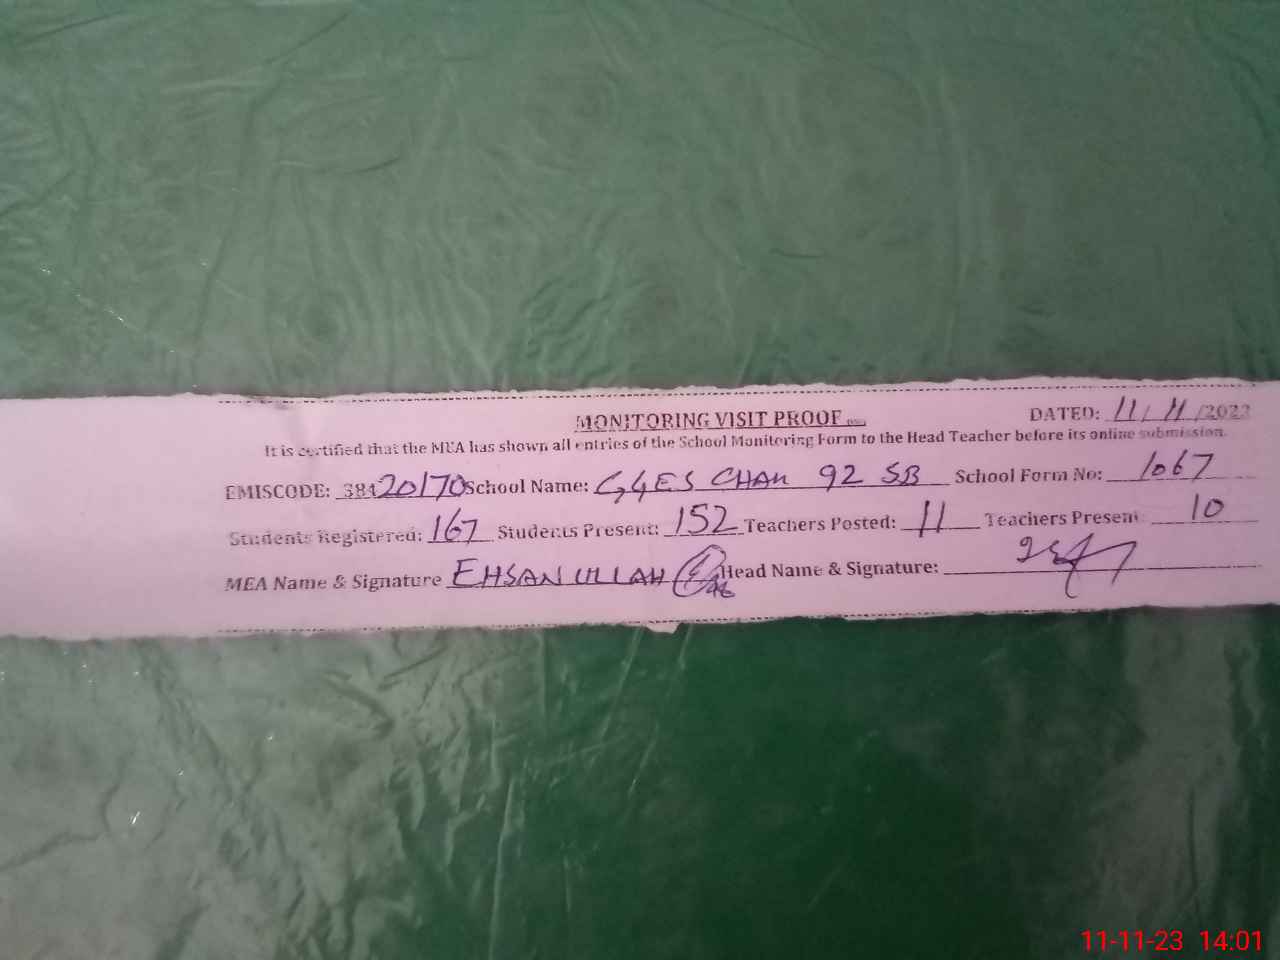 MONITORING VISIT PROOF DATED: 11/11/2023
It is certified that the MEA has shown all entries of the School Monitoring Form to the Head Teacher before its online submission.
EMISCODE: 38420170 School Name: GGES CHAK 92 SB School Form No: 1067
Students Registered: 167 Students Present: 152 Teachers Posted: 11 Teachers Present: 10
MEA Name & Signature EHSAN ULLAH Head Name & Signature:
11-11-23 14:01